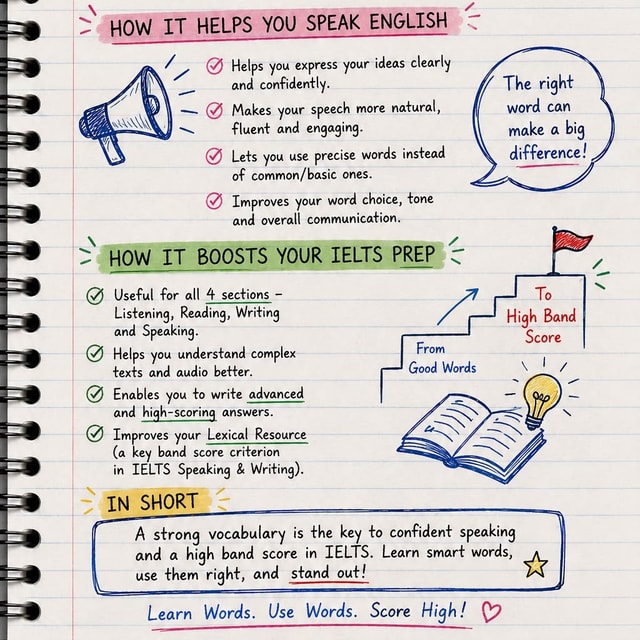 HOW IT HELPS YOU SPEAK ENGLISH
Helps you express your ideas clearly
and confidently.
Makes your speech more natural,
fluent and engaging.
Lets you use precise words instead
of common/basic ones.
Improves your word choice, tone
and overall communication.
The right
word can
make a big
difference!
HOW IT BOOSTS YOUR IELTS PREP
Useful for all 4 sections –
Listening, Reading, Writing
and Speaking.
Helps you understand complex
texts and audio better.
Enables you to write advanced
and high-scoring answers.
Improves your Lexical Resource
(a key band score criterion
in IELTS Speaking & Writing).
From
Good Words
To
High Band
Score
IN SHORT
A strong vocabulary is the key to confident speaking
and a high band score in IELTS. Learn smart words,
use them right, and stand out!
Learn Words. Use Words. Score High!